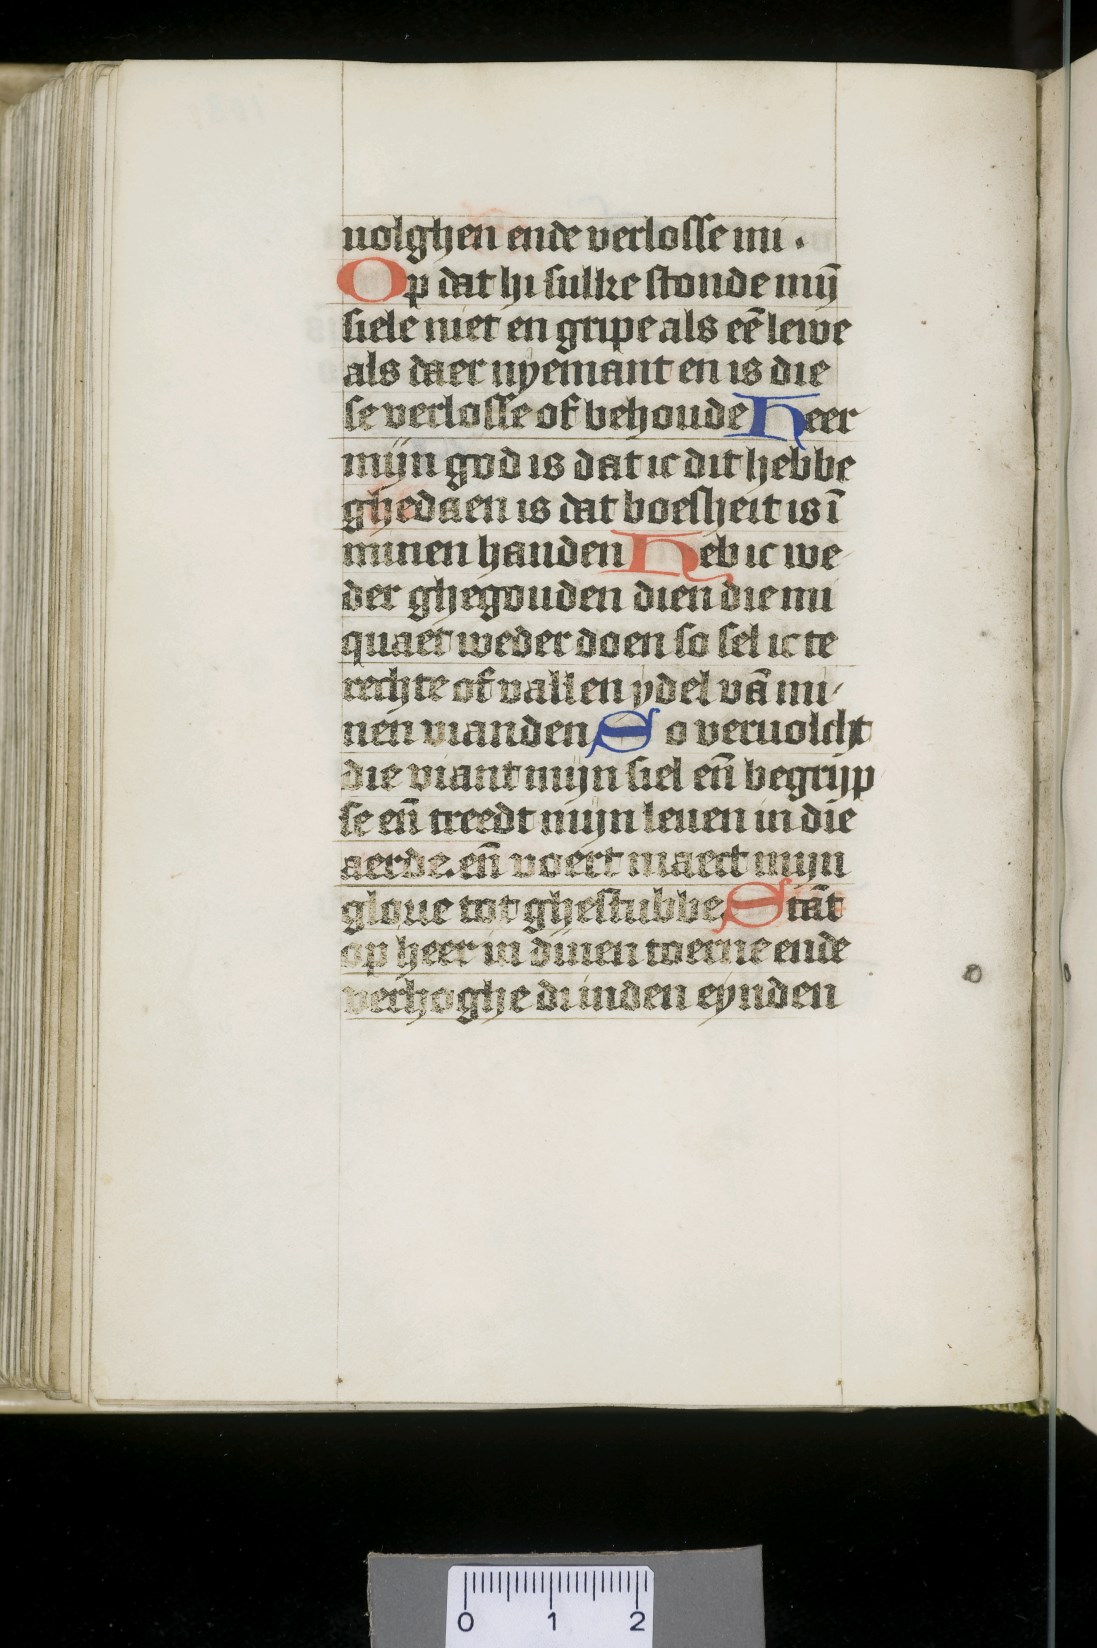 uolghen ende verlosse mi.
Op dat hi sulke stonde mij̄
siele niet en gripe als eē lewe
als daer nyemant en is die
se verlosse of behoude Heer
mijn god is dat ic dit hebbe
ghedaen is dat boesheit is ī
minen handen Heb ic we
der ghegouden dien die mi
quaet weder doen so sel ic te
rechte of vallen ydel vā mi/
nen vianden So veruolcht
die viant mijn siel en̄ begrijp
se en̄ treedt mijn leuen in die
aerde. en̄ voert maect mijn
gloue tot ghestubbe Stāt
op heer in dinen toerne ende
verhoghe di in den eynden
0 1 2